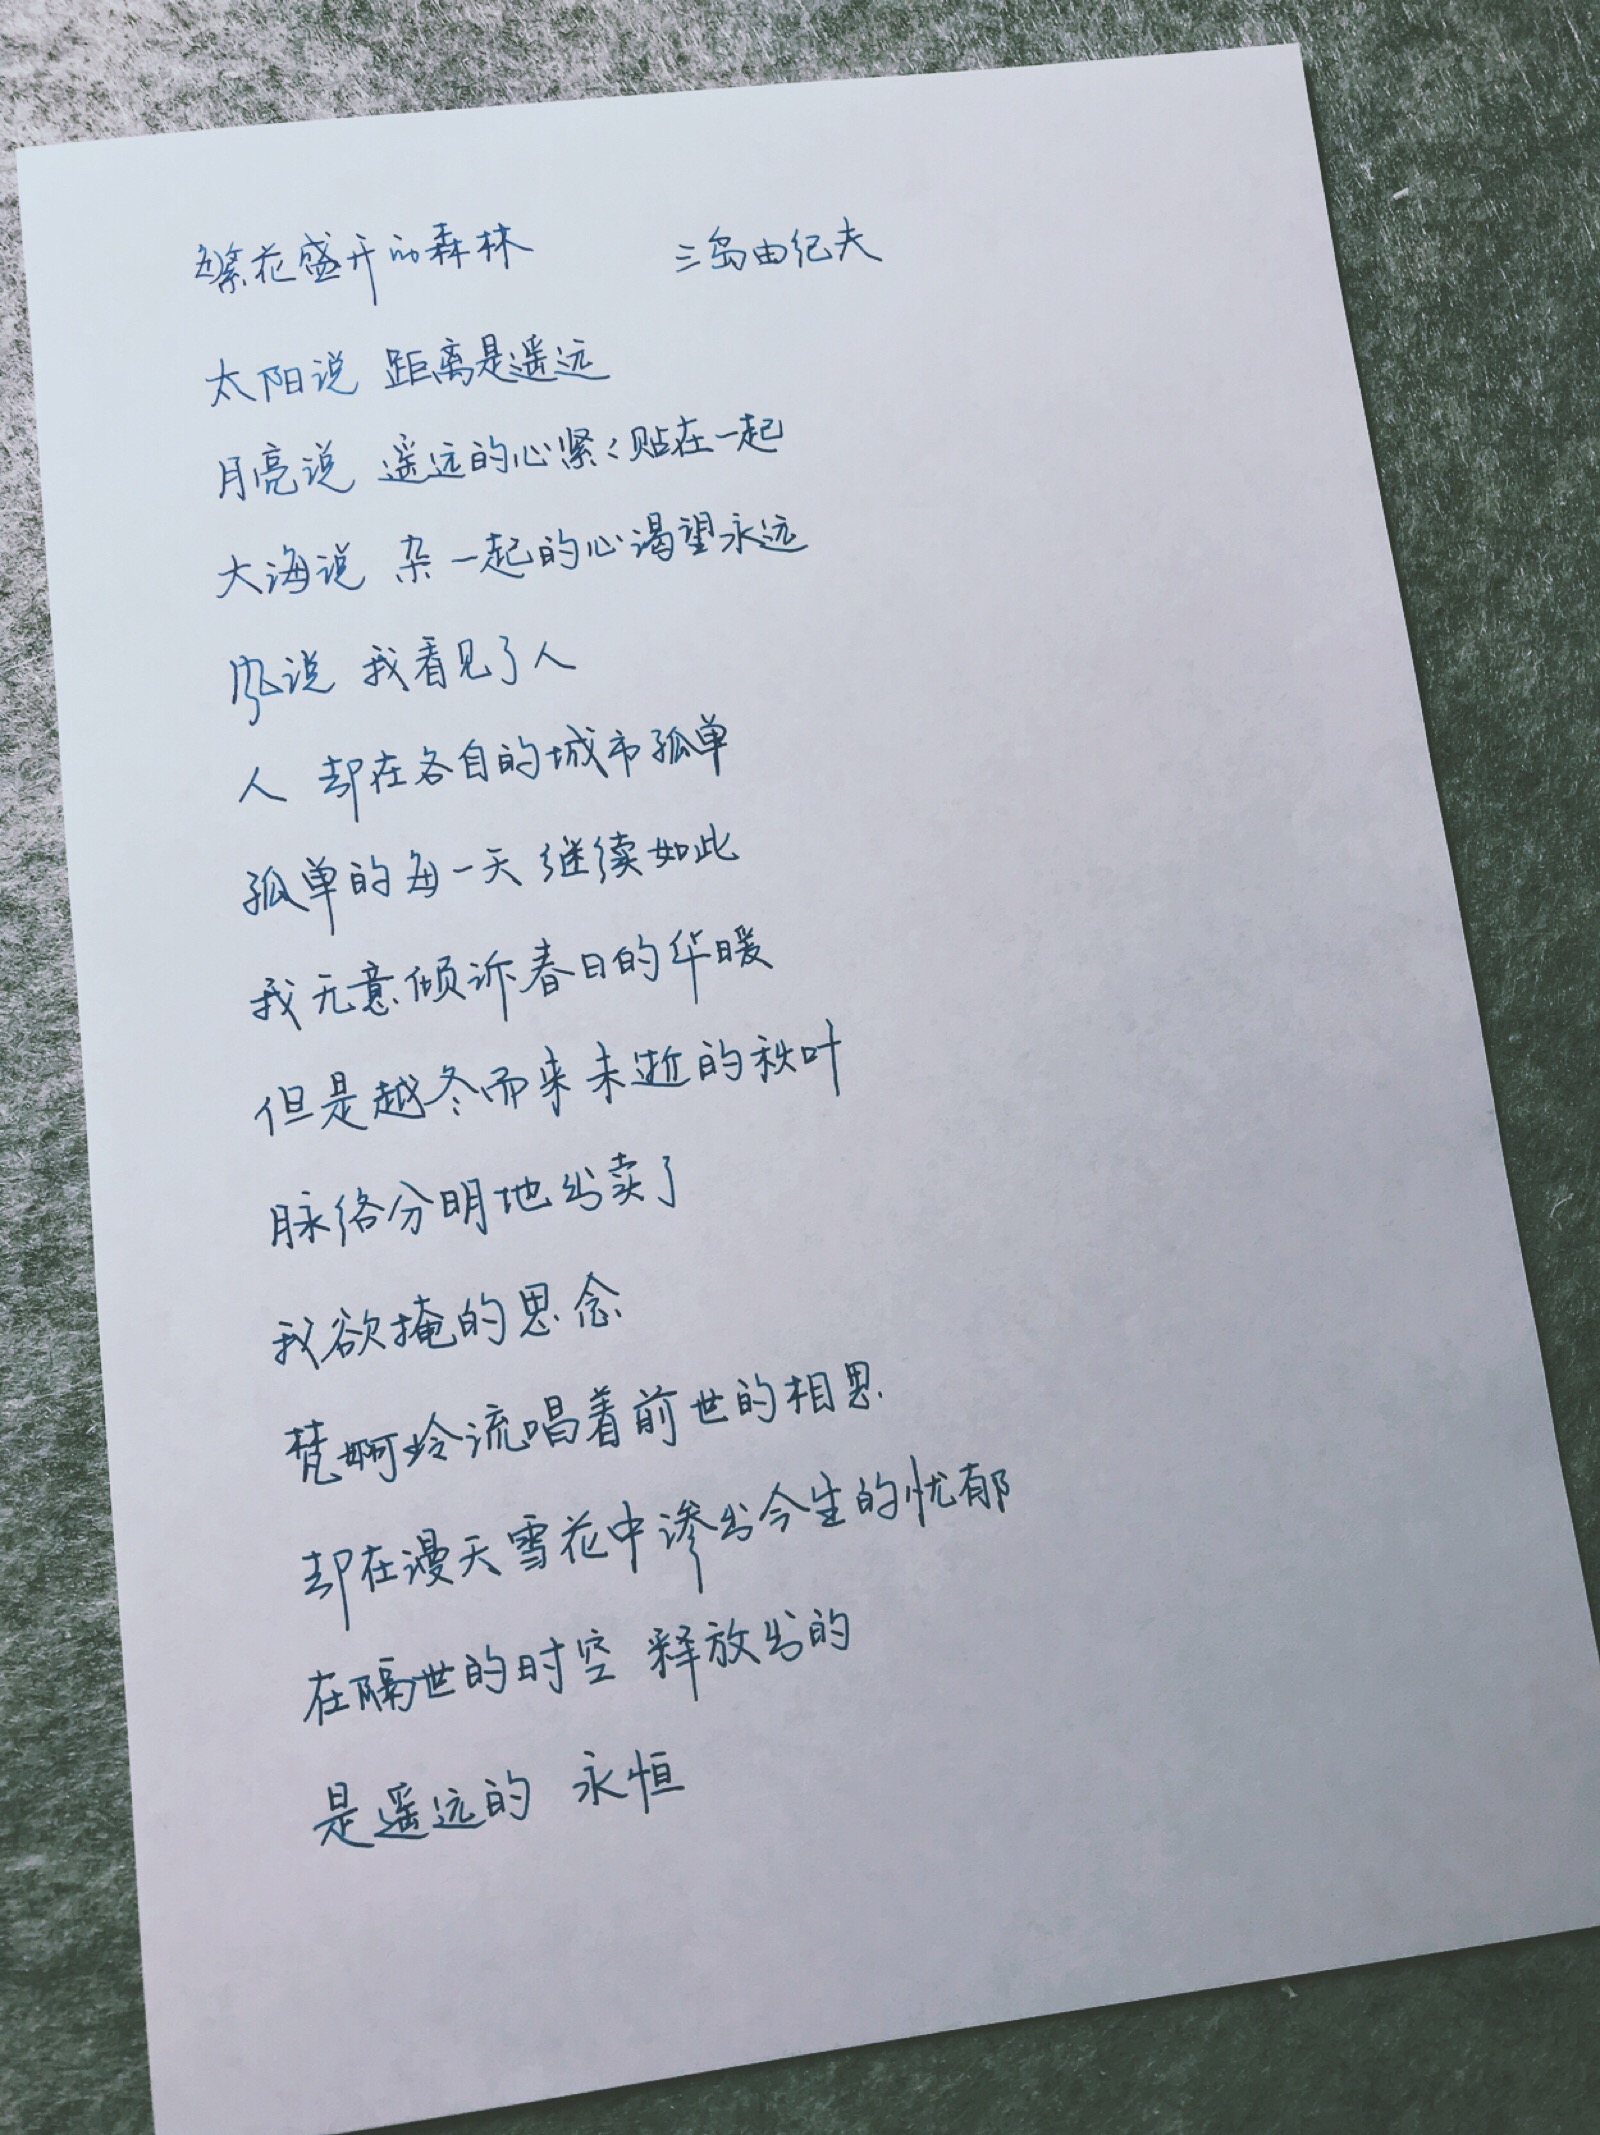 繁花盛开的森林 三岛由纪夫
太阳说 距离是遥远
月亮说 遥远的心紧々贴在一起
大海说 杂一起的心渴望永远
风说 我看见了人
人 却在各自的城市孤单
孤单的每一天 继续如此
我无意倾诉春日的华暖
但是越冬而来未逝的秋叶
脉络分明地出卖了
我欲掩的思念
梵婀玲流唱着前世的相思
却在漫天雪花中渗出今生的忧郁
在隔世的时空 释放出的
是遥远的 永恒